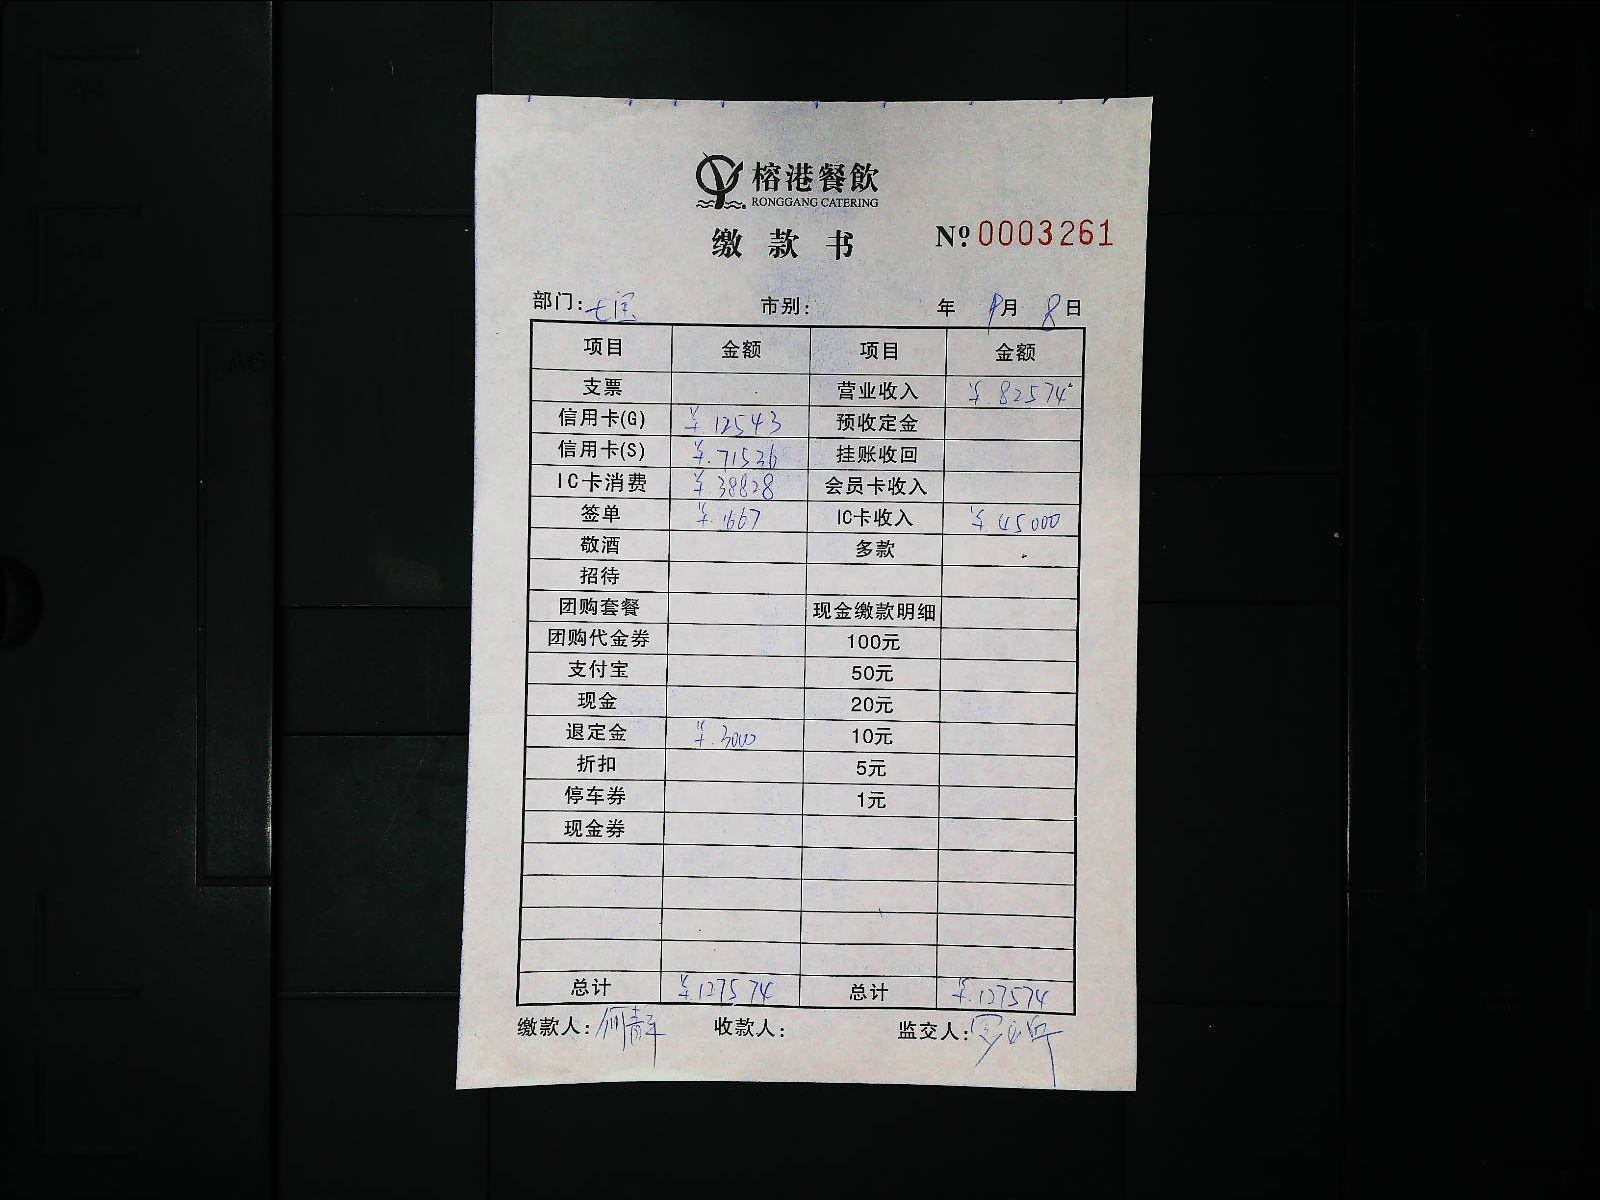 榕港餐飲
RONGGANG CATERING
缴款书
Nº 0003261
部门: 七宝 市别: 年 9月 8日
项目 金额 项目 金额
支票 营业收入 ¥.82574
信用卡(G) ¥.12543 预收定金
信用卡(S) ¥.71536 挂账收回
IC卡消费 ¥.38828 会员卡收入
签单 ¥.1667 IC卡收入 ¥45000
敬酒 多款
招待
团购套餐 现金缴款明细
团购代金券 100元
支付宝 50元
现金 20元
退定金 ¥.3000 10元
折扣 5元
停车券 1元
现金券
总计 ¥127574 总计 ¥.127574
缴款人: 收款人: 监交人: